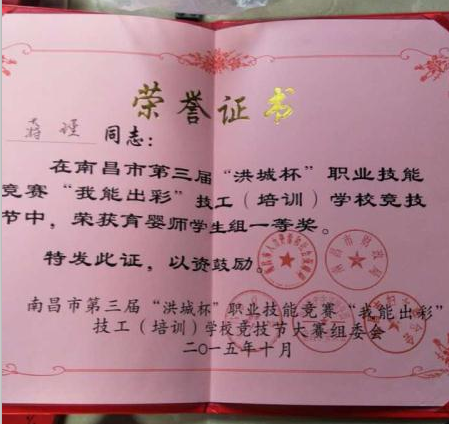 荣誉证书
同志：
在南昌市第三届“洪城杯”职业技能
竞赛“我能出彩”技工（培训）学校竞技
节中，荣获育婴师学生组一等奖。
特发此证，以资鼓励。
南昌市第三届“洪城杯”职业技能竞赛“我能出彩”
技工（培训）学校竞技节大赛组委会
二〇一五年十月